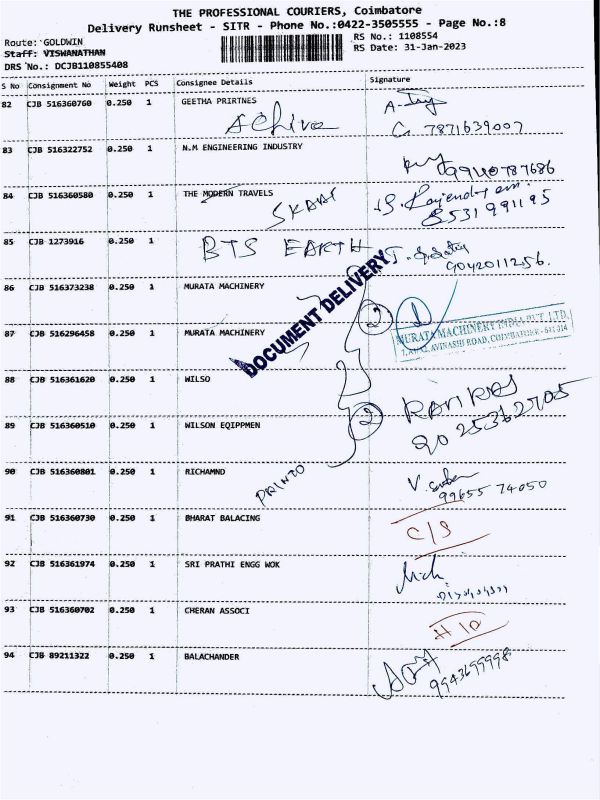 THE PROFESSIONAL COURIERS, Coimbatore
Delivery Runsheet - SITR - Phone No.:0422-3505555 - Page No.:8
Route: GOLDWIN
RS No.: 1108554
Staff: VISWANATHAN
RS Date: 31-Jan-2023
DRS No.: DCJB110855408
S No Consignment No Weight PCS Consignee Details Signature
82 CJB 516360760 0.250 1 GEETHA PRIRTNES
Achive
7871639007
83 CJB 516322752 0.250 1 N.M ENGINEERING INDUSTRY
9940787686
84 CJB 516360580 0.250 1 THE MODERN TRAVELS
SKAAT
S. Rajendran
8531991195
85 CJB 1273916 0.250 1 BTS EARTH
9042011256.
86 CJB 516373238 0.250 1 MURATA MACHINERY
DOCUMENT DELIVERY
2
87 CJB 516296458 0.250 1 MURATA MACHINERY
MURATA MACHINERY INDIA PVT. LTD.
AVINASHI ROAD, COIMBATORE - 641 014
88 CJB 516361620 0.250 1 WILSO
89 CJB 516360510 0.250 1 WILSON EQIPPMEN
2
9025362705
90 CJB 516360801 0.250 1 RICHAMND
PRINTO
99655 74050
91 CJB 516360730 0.250 1 BHARAT BALACING
C/S
92 CJB 516361974 0.250 1 SRI PRATHI ENGG WOK
93 CJB 516360702 0.250 1 CHERAN ASSOCI
H10
94 CJB 89211322 0.250 1 BALACHANDER
9943699998